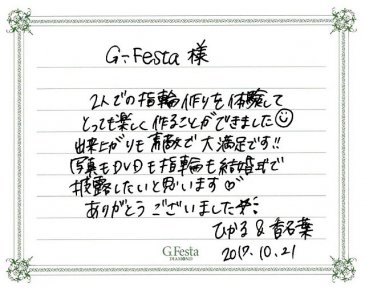 G.Festa 様
2人での指輪作りを体験して
とっても楽しく作ることができました☺
出来上がりも素敵で大満足です!!
写真もDVDも指輪も結婚式で
披露したいと思います♡
ありがとうございました
ひかる & 香名葉
G.Festa
DIAMOND
2017.10.21